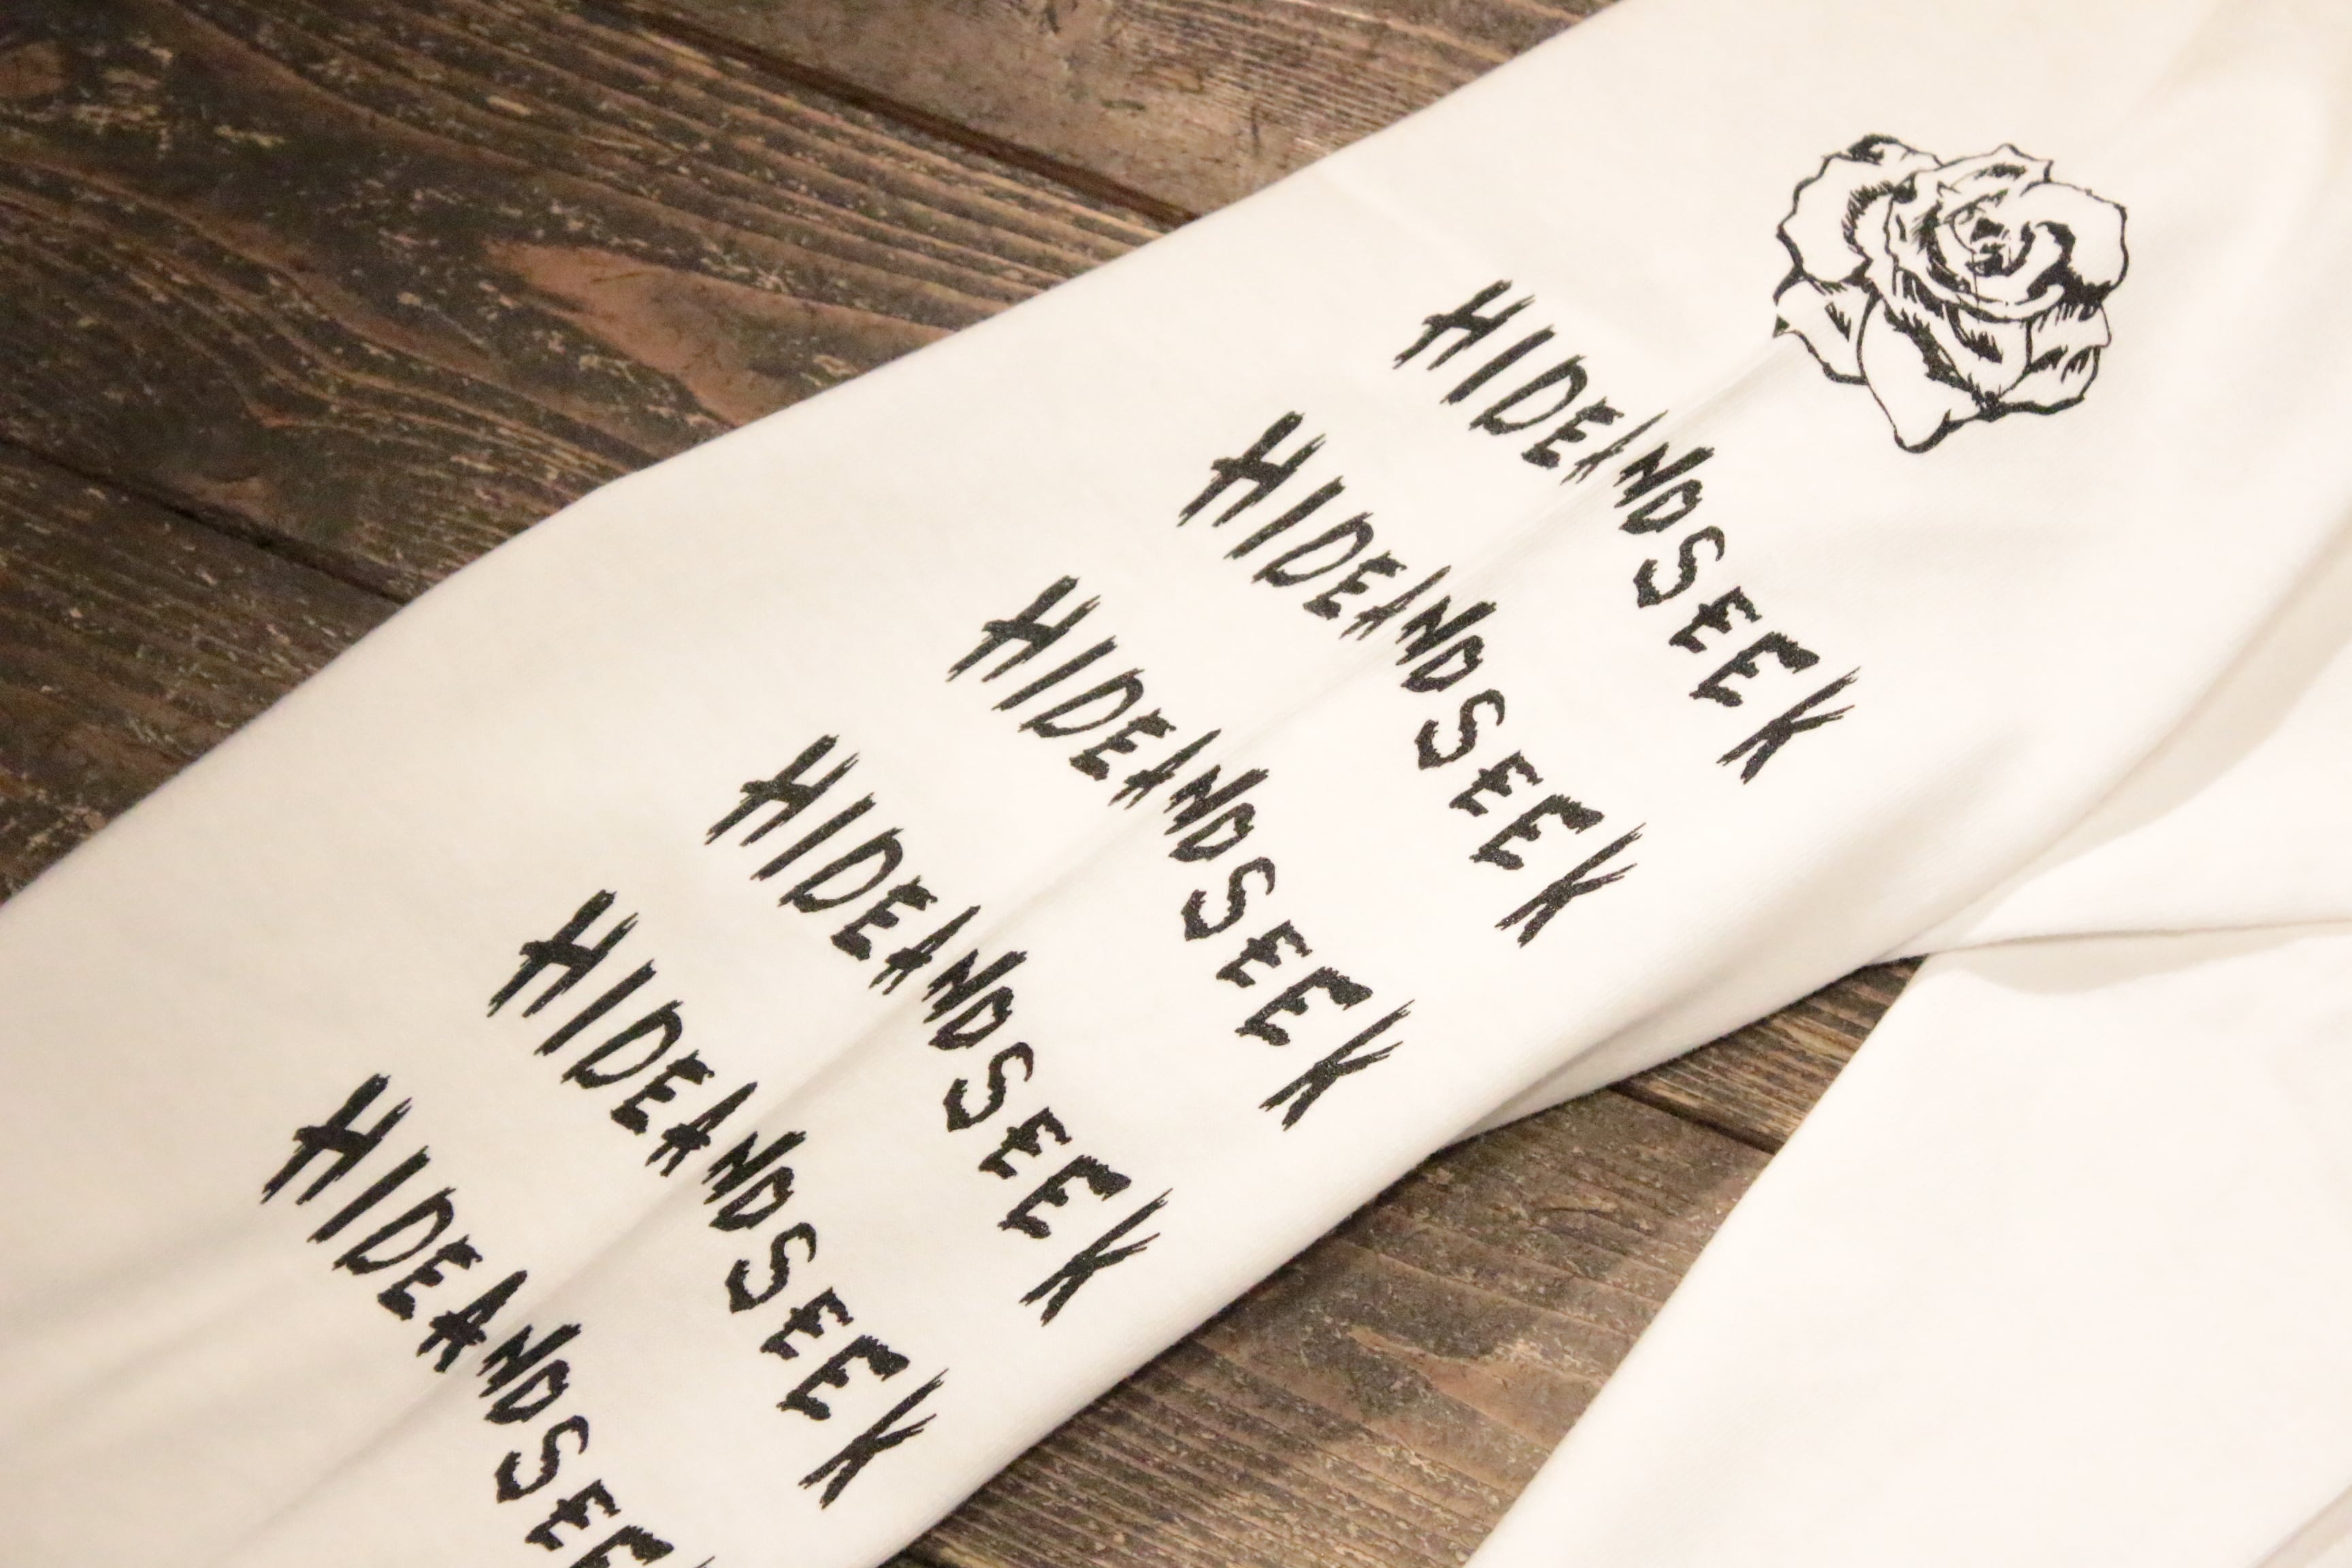 HIDEANDSEEK
HIDEANDSEEK
HIDEANDSEEK
HIDEANDSEEK
HIDEANDSEEK
HIDEANDSEE